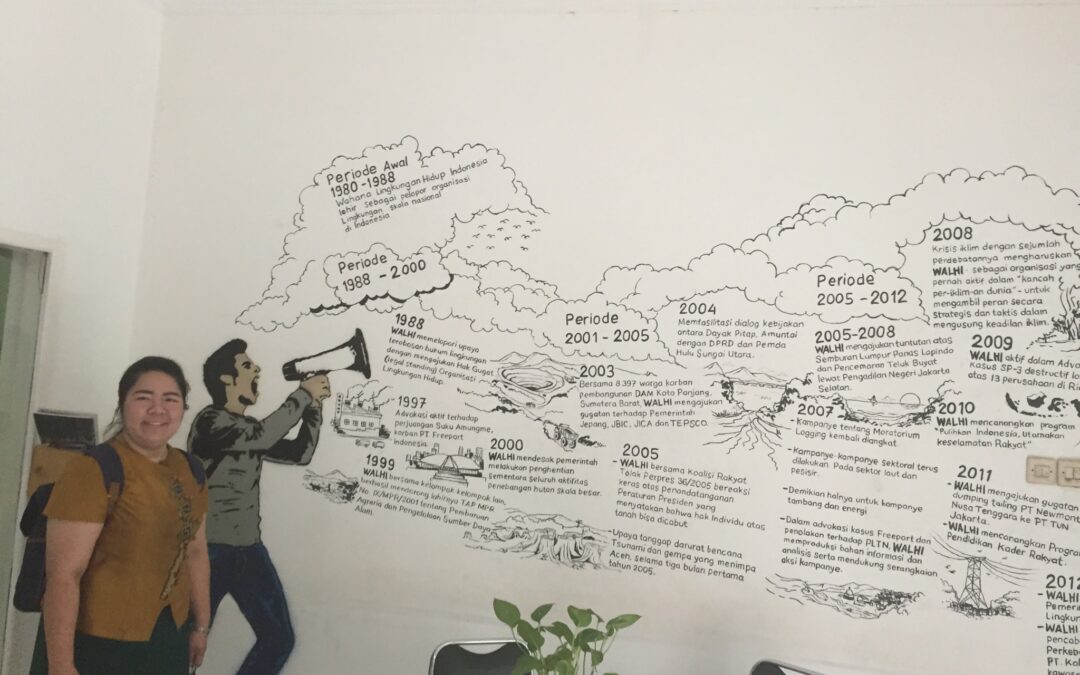 Periode Awal
1980 - 1988
Wahana Lingkungan Hidup Indonesia
lahir sebagai pelopor organisasi
Lingkungan skala nasional
di Indonesia
Periode
1988 - 2000
1988
WALHI memelopori upaya
terobosan hukum lingkungan
dengan mengajukan Hak Gugat
(legal standing) Organisasi
Lingkungan Hidup.
1997
Advokasi aktif terhadap
perjuangan Suku Amungme,
korban PT. Freeport
Indonesia.
1999
WALHI bersama kelompok kelompok lain,
berhasil mendorong lahirnya TAP MPR
No. IX/MPR/2001 tentang Pembaruan
Agraria dan Pengelolaan Sumber Daya
Alam.
2000
WALHI mendesak pemerintah
melakukan penghentian
sementara seluruh aktifitas
penebangan hutan skala besar.
Periode
2001 - 2005
2003
Bersama 8.397 warga korban
pembangunan DAM Koto Panjang,
Sumatera Barat, WALHI mengajukan
gugatan terhadap Pemerintah
Jepang, JBIC, JICA dan TEPSCO.
2004
Memfasilitasi dialog kebijakan
antara Dayak Pitap, Amuntai
dengan DPRD dan Pemda
Hulu Sungai Utara.
2005
- WALHI bersama Koalisi Rakyat
Tolak Perpres 36/2005 bereaksi
keras atas penandatanganan
Peraturan Presiden yang
menyatakan bahwa hak Individu atas
tanah bisa dicabut
- Upaya tanggap darurat bencana
Tsunami dan gempa yang menimpa
Aceh, selama tiga bulan pertama
tahun 2005.
Periode
2005 - 2012
2005-2008
WALHI mengajukan tuntutan atas
Semburan Lumpur Panas Lapindo
dan Pencemaran Teluk Buyat
lewat Pengadilan Negeri Jakarta
Selatan.
2007
- Kampanye tentang Moratorium
Logging kembali diangkat.
- Kampanye-kampanye sektoral terus
dilakukan. Pada sektor laut dan
pesisir.
- Demikian halnya untuk kampanye
tambang dan energi
- Dalam advokasi kasus Freeport dan
penolakan terhadap PLTN, WALHI
memproduksi bahan informasi dan
analisis serta mendukung serangkaian
aksi kampanye.
2008
Krisis iklim dengan sejumlah
perdebatannya mengharuskan
WALHI - sebagai organisasi yang
pernah aktif dalam "kancah
per-iklim-an dunia" - untuk
mengambil peran secara
strategis dan taktis dalam
mengusung keadilan iklim.
2009
WALHI aktif dalam Advo
Kasus SP-3 destructif lo
atas 13 perusahaan di Ri
2010
WALHI mencanangkan program
"Pulihkan Indonesia, Utamakan
keselamatan Rakyat"
2011
- WALHI mengajukan gugatan
dumping tailing PT Newmont
Nusa Tenggara ke PT TUN
Jakarta.
- WALHI mencanangkan Progra
Pendidikan Kader Rakyat.
2012
- WALHI
Pemeri
Lingku
- WALHI
pencab
Perkeb
PT. Kal
kawas